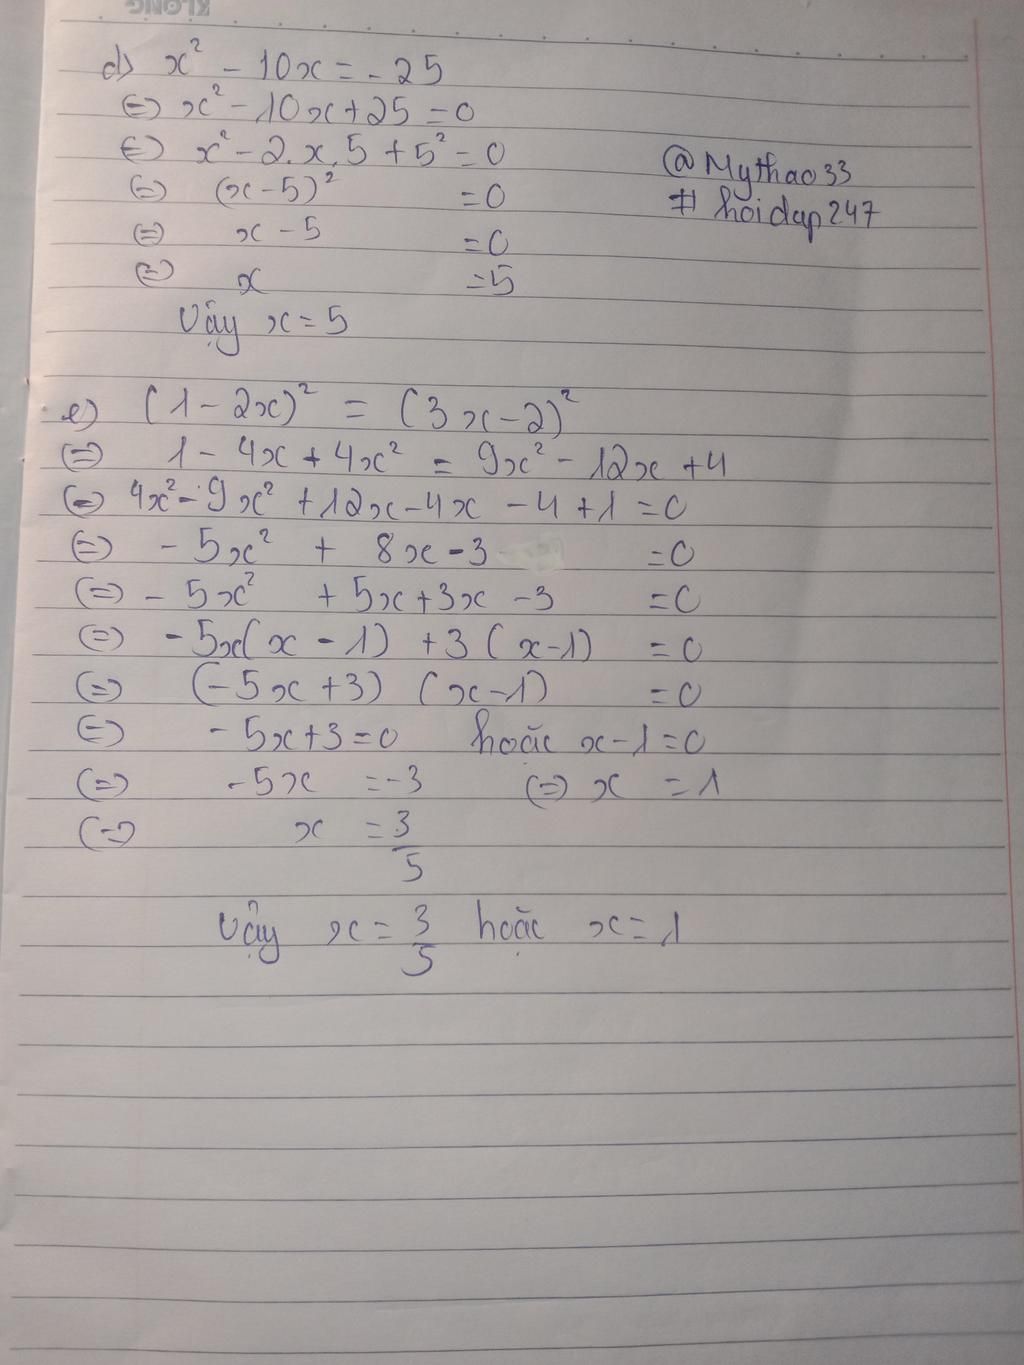 KLONG
d) x² - 10x = -25
(=) x² - 10x + 25 = 0
(=) x² - 2.x.5 + 5² = 0
(=) (x-5)² = 0
(=) x - 5 = 0
(=) x = 5
Vậy x = 5
@Mythao33
# hoidap247
e) (1 - 2x)² = (3x - 2)²
(=) 1 - 4x + 4x² = 9x² - 12x + 4
(=) 4x² - 9x² + 12x - 4x - 4 + 1 = 0
(=) - 5x² + 8x - 3 = 0
(=) - 5x² + 5x + 3x - 3 = 0
(=) - 5x(x - 1) + 3(x-1) = 0
(=) (-5x + 3) (x-1) = 0
(=) - 5x + 3 = 0 hoặc x - 1 = 0
(=) - 5x = -3 (=) x = 1
(=) x = 3/5
Vậy x = 3/5 hoặc x = 1